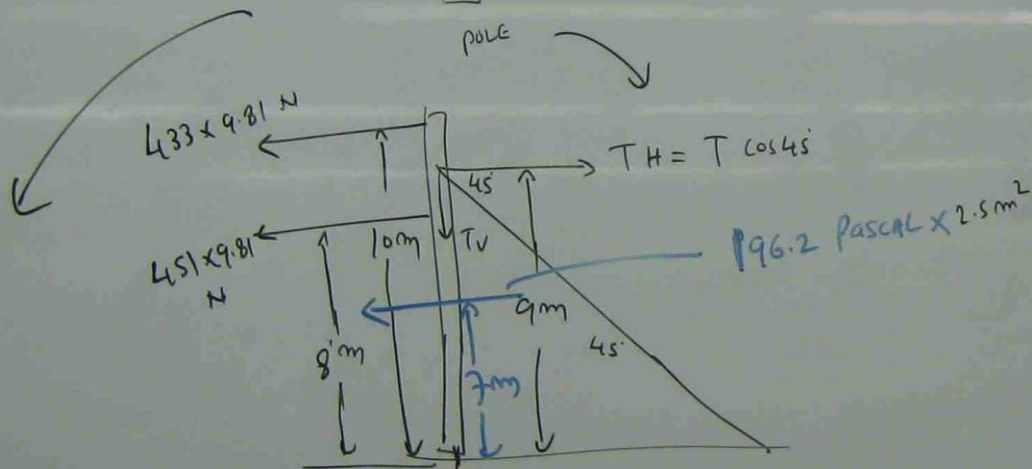 POLE
433 x 9.81 N
TH = T cos45
45
451 x 9.81
N
10m
TV
196.2 PASCAL x 2.5 m²
9m
8m
7m
45